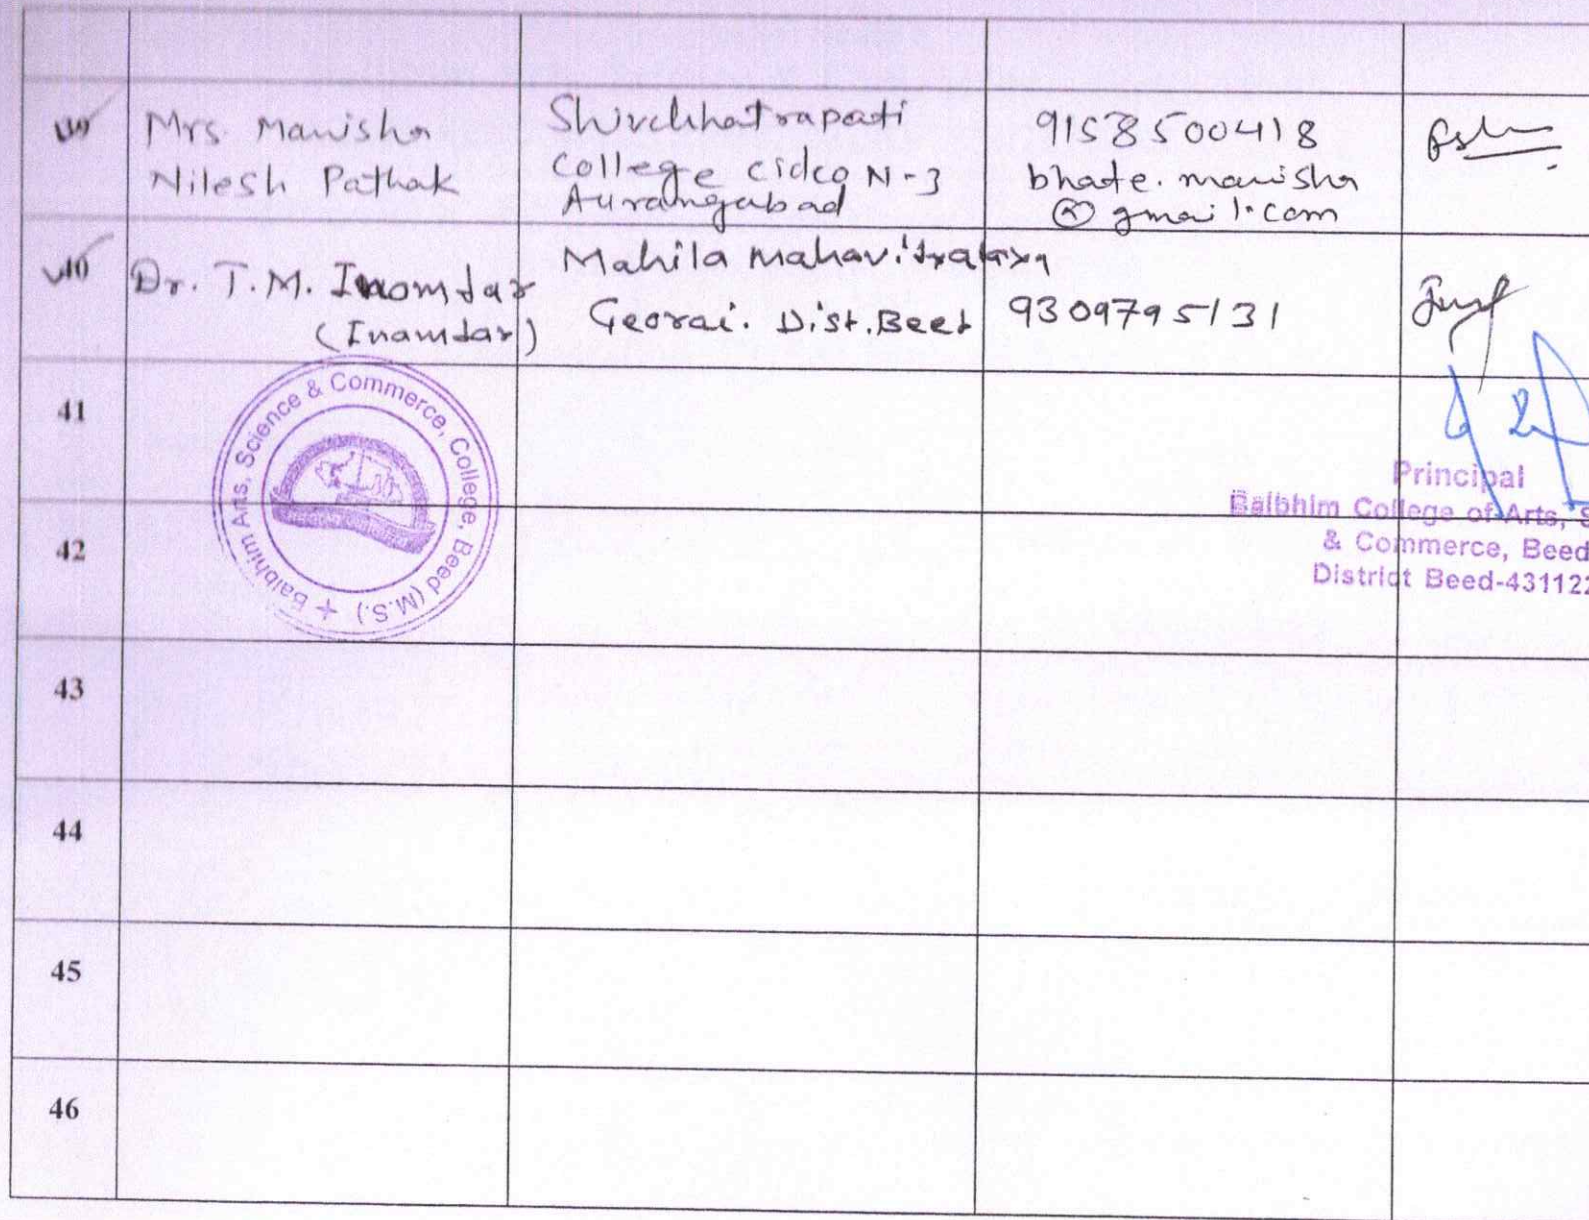 Mrs. Manisha
Nilesh Pathak
Shivchhatrapati
College cidco N-3
Aurangabad
9158500418
bhate.manisha
@gmail.com
40
Dr. T.M. Inamdar
(Inamdar)
Mahila Mahavidyalaya
Georai. Dist. Beed
9309795131
41
Balbhim Arts, Science & Commerce, College, Beed (M.S.)
Principal
Balbhim College of Arts, S
& Commerce, Beed
District Beed-431122
42
43
44
45
46